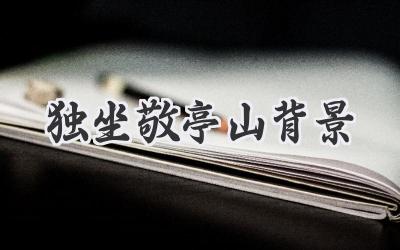 独坐敬亭山背景